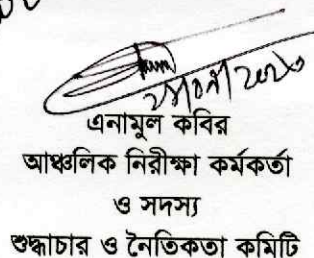 এনামুল কবির
আঞ্চলিক নিরীক্ষা কর্মকর্তা
ও সদস্য
শুদ্ধাচার ও নৈতিকতা কমিটি